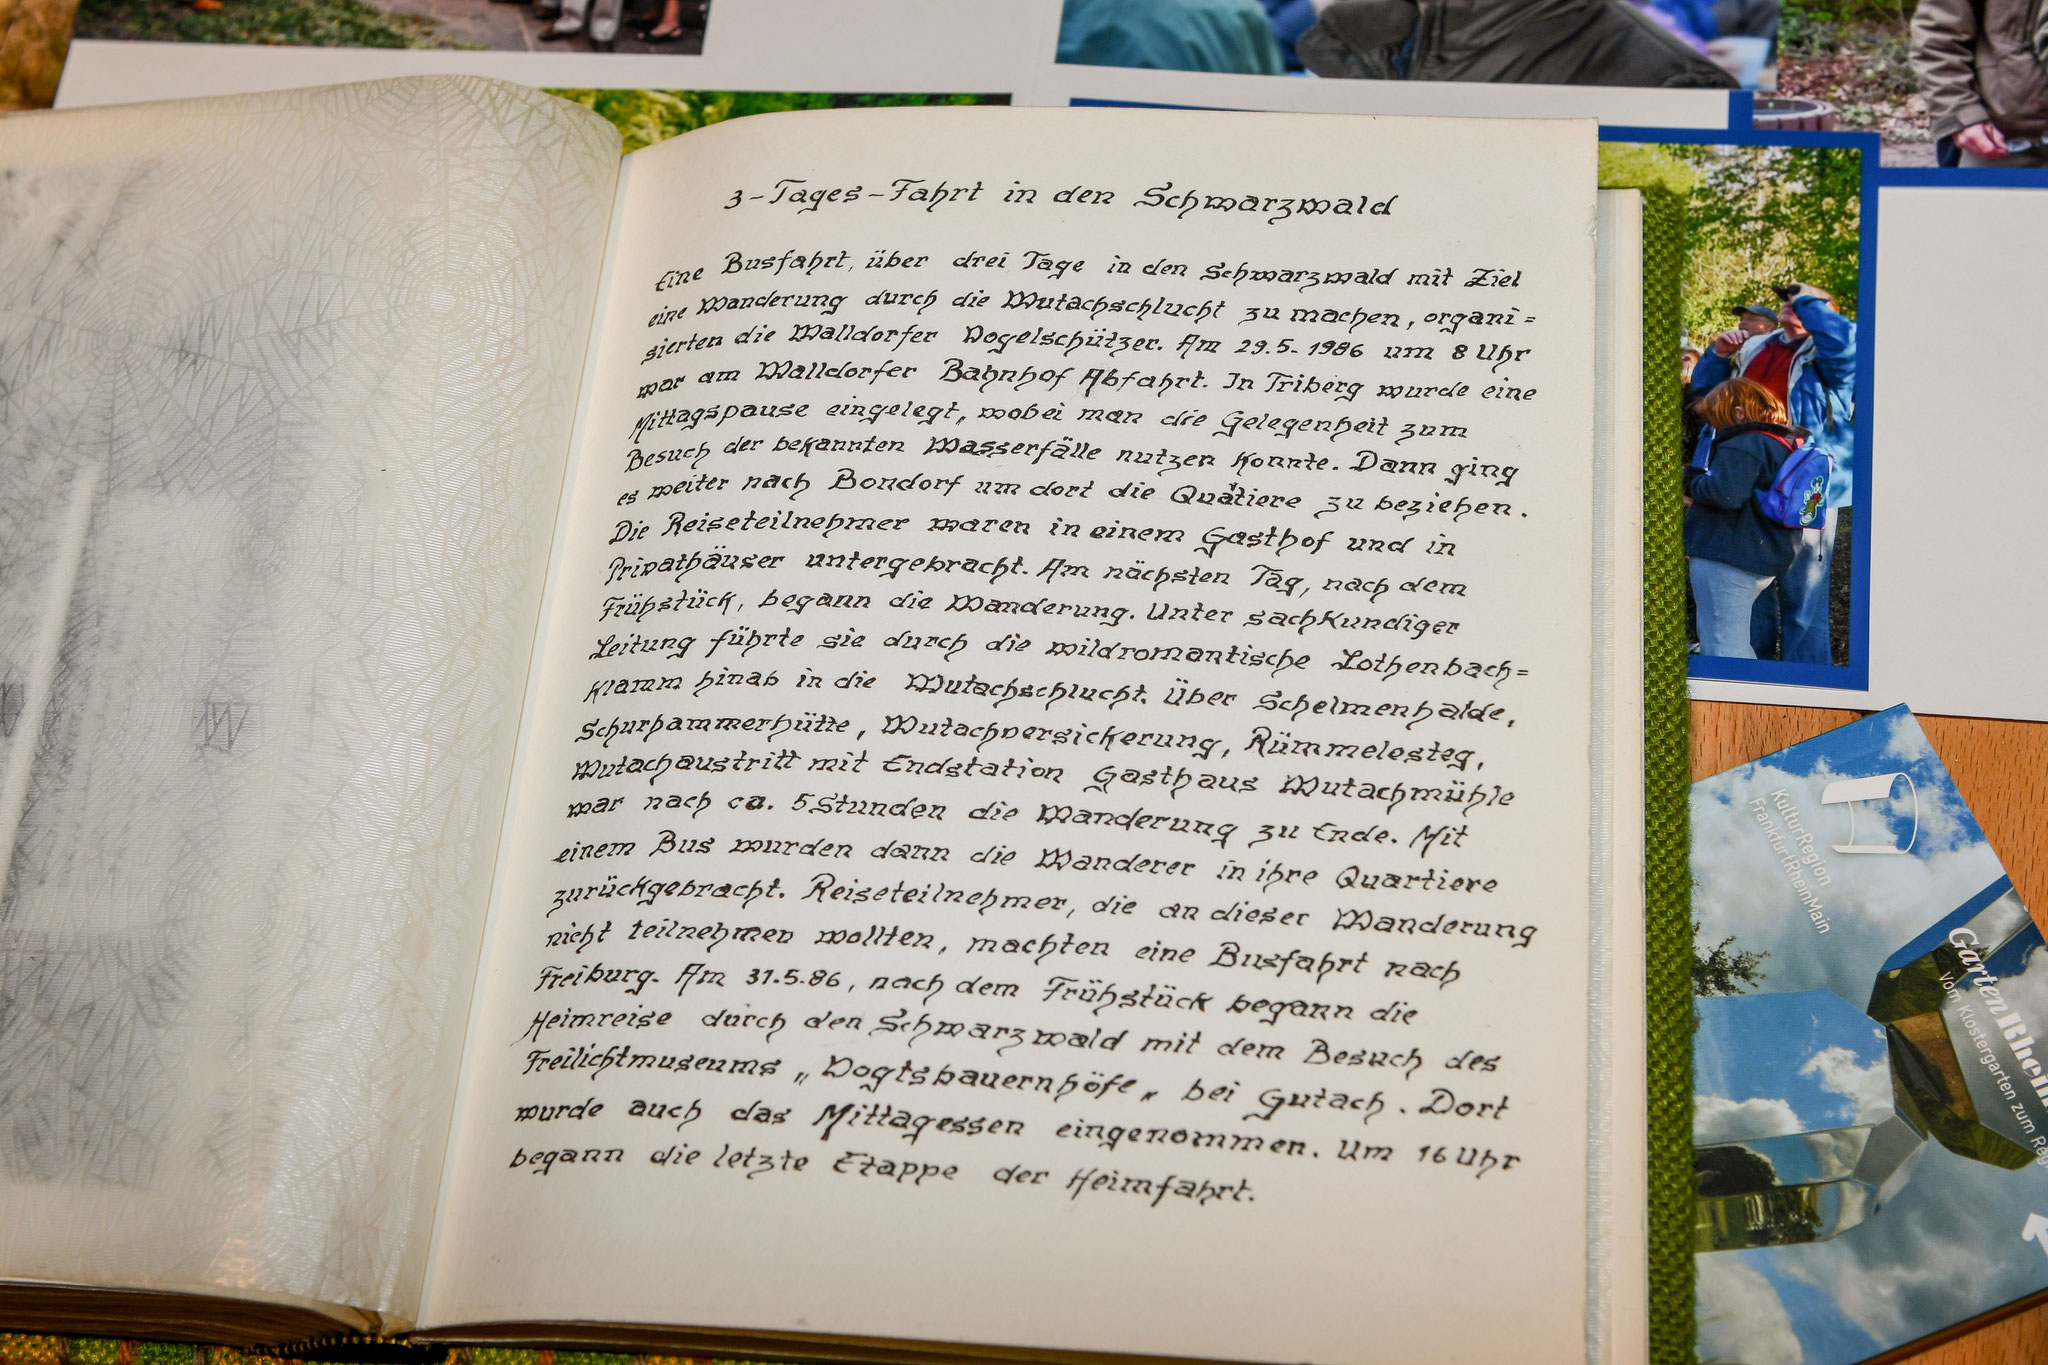 3-Tages-Fahrt in den Schwarzwald
Eine Busfahrt, über drei Tage in den Schwarzwald mit Ziel
eine Wanderung durch die Wutachschlucht zu machen, organi=
sierten die Walldorfer Vogelschützer. Am 29.5.1986 um 8 Uhr
war am Walldorfer Bahnhof Abfahrt. In Triberg wurde eine
Mittagspause eingelegt, wobei man die Gelegenheit zum
Besuch der bekannten Wasserfälle nutzen konnte. Dann ging
es weiter nach Bondorf um dort die Quatiere zu beziehen.
Die Reiseteilnehmer waren in einem Gasthof und in
Privathäuser untergebracht. Am nächsten Tag, nach dem
Frühstück, begann die Wanderung. Unter sachkundiger
Leitung führte sie durch die wildromantische Lothenbach=
klamm hinab in die Wutachschlucht. Über Schelmenhalde,
Schurhammerhütte, Wutachversickerung, Rümmelesteg,
Wutachaustritt mit Endstation Gasthaus Wutachmühle
war nach ca. 5 Stunden die Wanderung zu Ende. Mit
einem Bus wurden dann die Wanderer in ihre Quartiere
zurückgebracht. Reiseteilnehmer, die an dieser Wanderung
nicht teilnehmen wollten, machten eine Busfahrt nach
Freiburg. Am 31.5.86, nach dem Frühstück begann die
Heimreise durch den Schwarzwald mit dem Besuch des
Freilichtmuseums „Vogtsbauernhöfe„ bei Gutach. Dort
wurde auch das Mittagessen eingenommen. Um 16 Uhr
begann die letzte Etappe der Heimfahrt.
KulturRegion
FrankfurtRheinMain
GartenRhein
Vom Klostergarten zum Reg